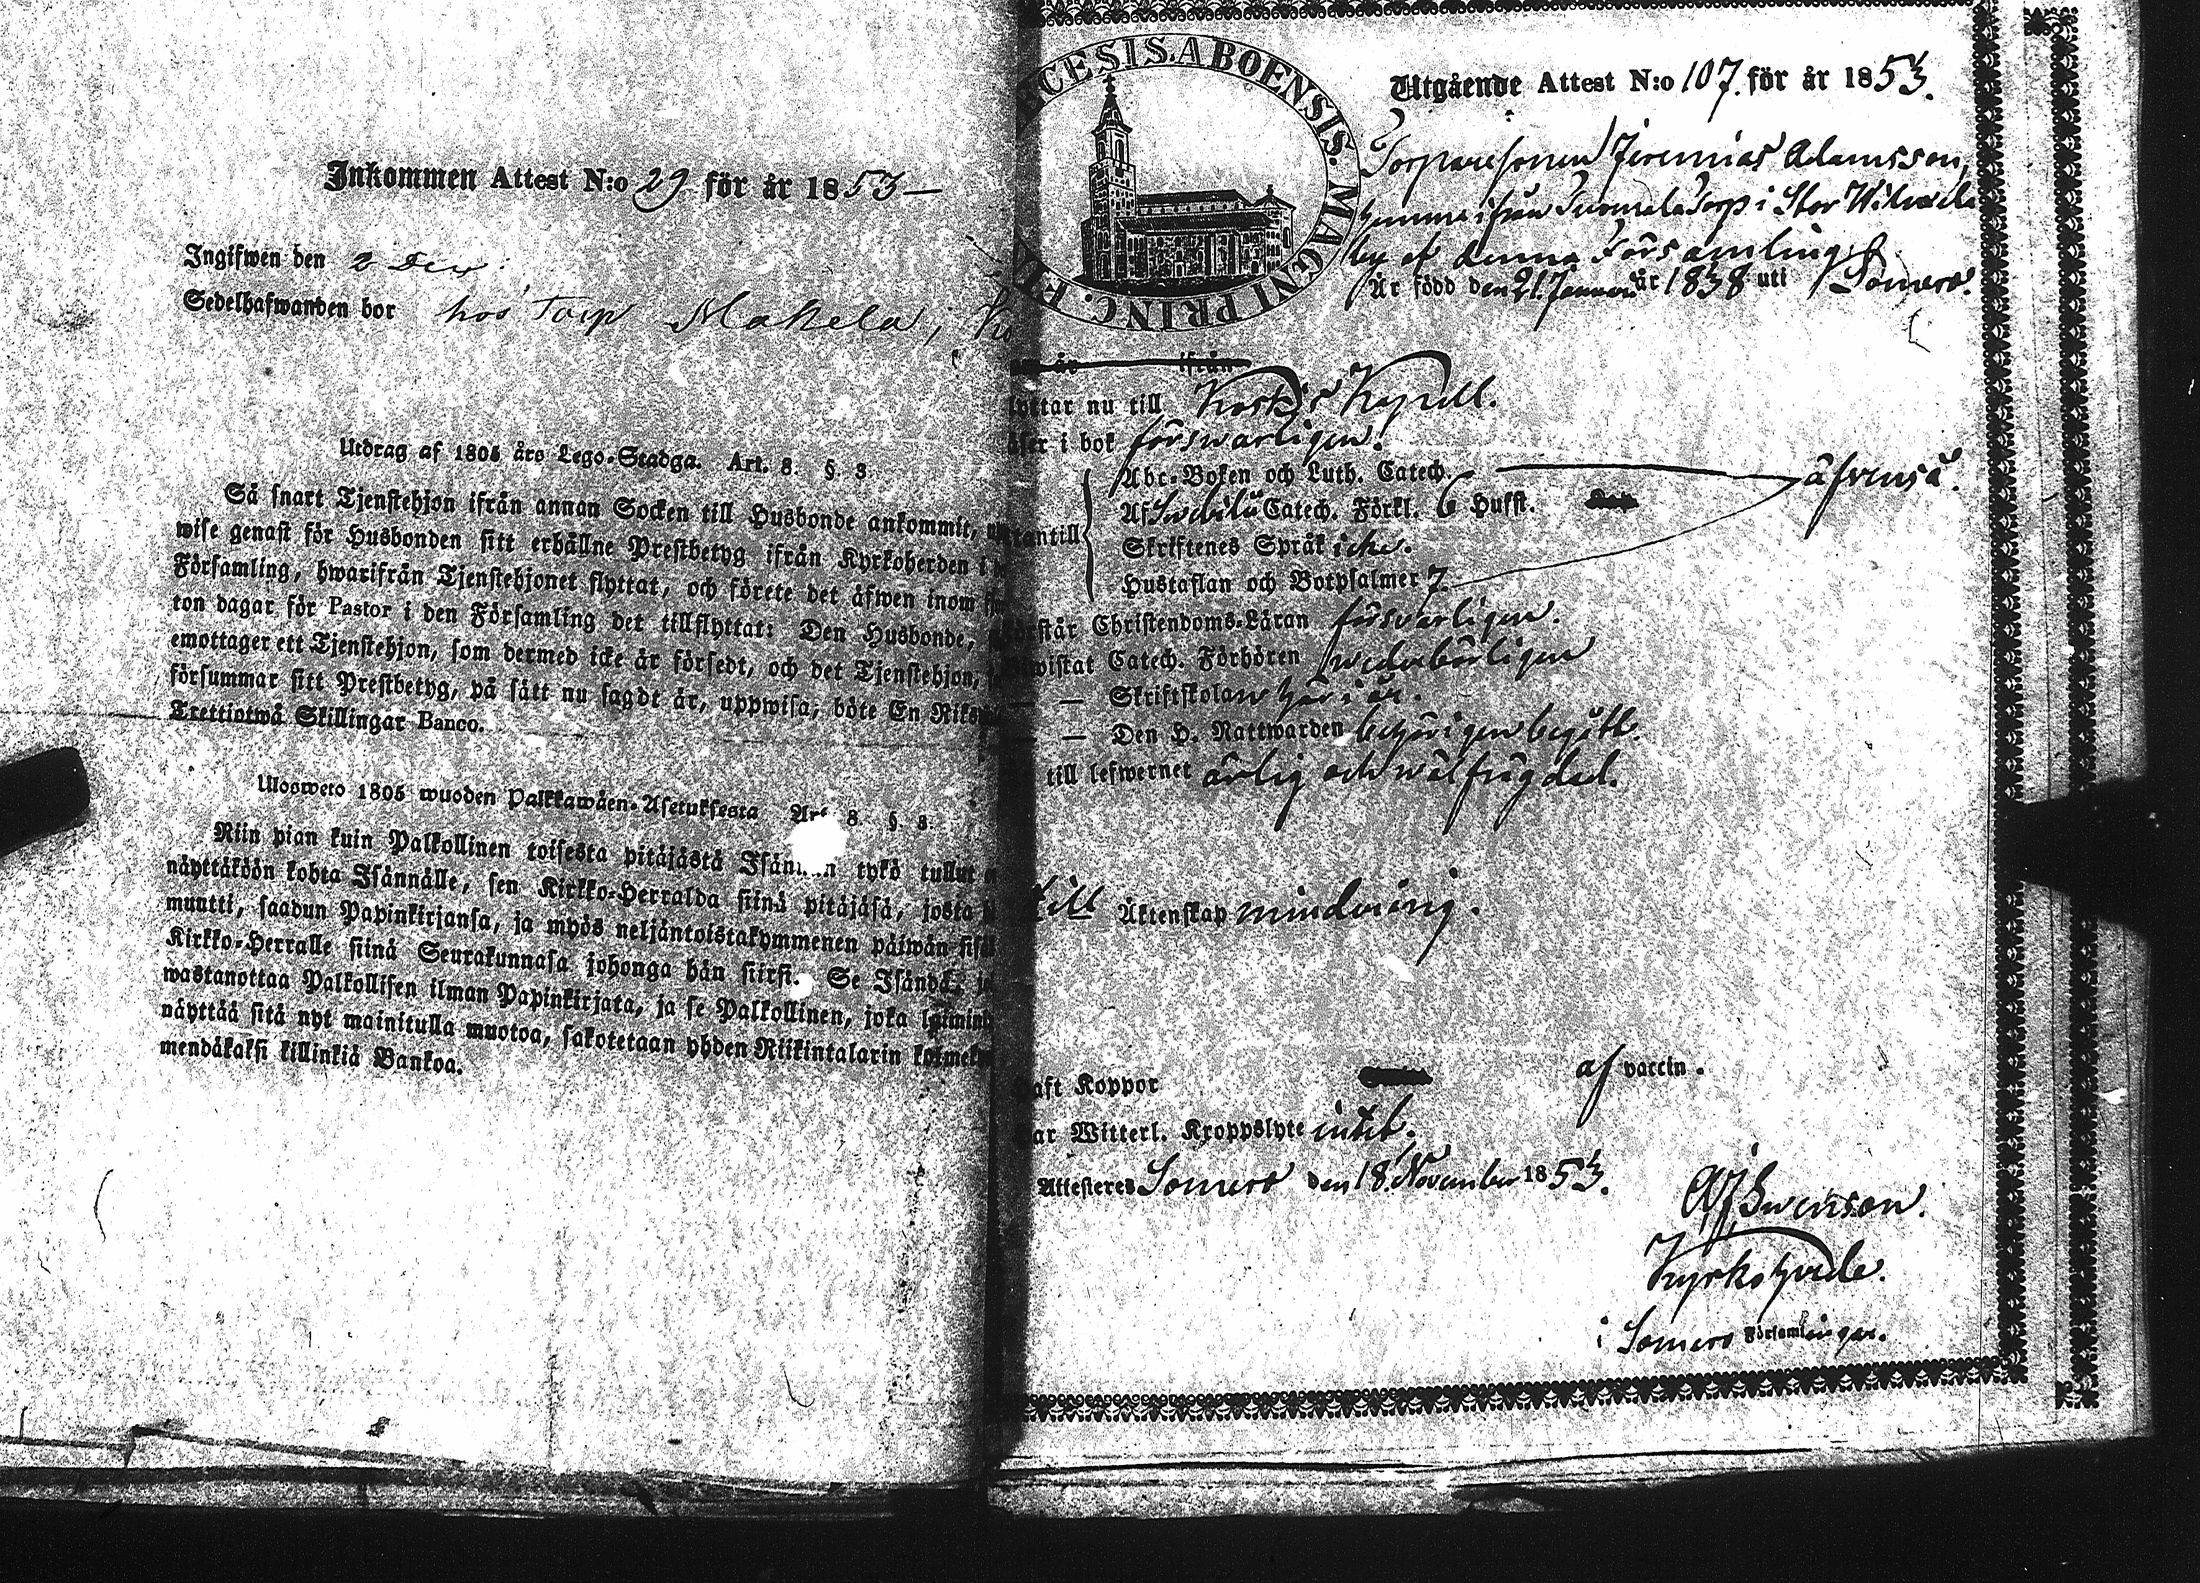 Inkommen Attest N:o 29 för år 1853 —
Ingifwen den 2 Dec:
Sedelhafwanden bor hos Torp Makela i
Utdrag af 1805 års Lego-Stadga. Art. 8. §. 3.
Så snart Tjenstehjon ifrån annan Socken till Husbonde ankommit,
wise genast för Husbonden sitt erhållne Prestbetyg ifrån Kyrkoherden i
Församling, hwarifrån Tjenstehjonet flyttat, och förete det äfwen inom
ton dagar för Pastor i den Församling det tillflyttat: Den Husbonde,
emottager ett Tjenstehjon, som dermed icke är försedt, och det Tjenstehjon,
försummar sitt Prestbetyg, på sätt nu sagdt är, uppwisa, böte En Riks
Trettiotwå Skillingar Banco.
Ulosweto 1805 wuoden Palkkawäen-Asetuksesta Art. 8. §. 3.
Niin pian kuin Palkollinen toisesta pitäjästä Isännän tykö tullut
näyttäköön kohta Isännälle, sen Kirkko-Herralda siinä pitäjäsä, josta
muutti, saadun Papinkirjansa, ja myös neljäntoistakymmenen päiwän sisäl
Kirkko-Herralle siinä Seurakunnasa johonga hän siirsi. Se Isändä,
wastanottaa Palkollisen ilman Papinkirjata, ja se Palkollinen, joka laimin
näyttää sitä nyt mainitulla muotoa, sakotetaan yhden Riikintalarin kolmeky
mendäkaksi killinkiä Bankoa.
CESIS. ABOENSIS. MAGNI PRINC. F
Utgående Attest N:o 107. för år 1853.
Torparesonen Jeremias Adamsson,
hemma ifrån Torp i Stor
by af denna Församling
Är född den 21. Januari år 1838 uti Somero.
ifrån
lyttar nu till Koskis Kapell.
äser i bok förswarligen.
Abc-Boken och Luth. Catech.
äfvenså.
Af Swebilii Catech. Förkl. 6 Hufst.
tantill
Skriftenes Språk icke.
Hustaflan och Botpsalmer 7.
örstår Christendoms-Läran försvarligen.
wistat Catech. Förhören wederbörligen
— — Skriftskolan här i år.
— Den H. Nattwarden behörigen begått.
till lefwernet ärlig och wälfrägdad.
till Äktenskap minderårig.
aft Koppor af vaccin.
ar Witterl. Kroppslyte intet.
Attesteres Somero den 18. November 1853.
Swenson.
Kyrkoherde.
i Somero Församlingar.